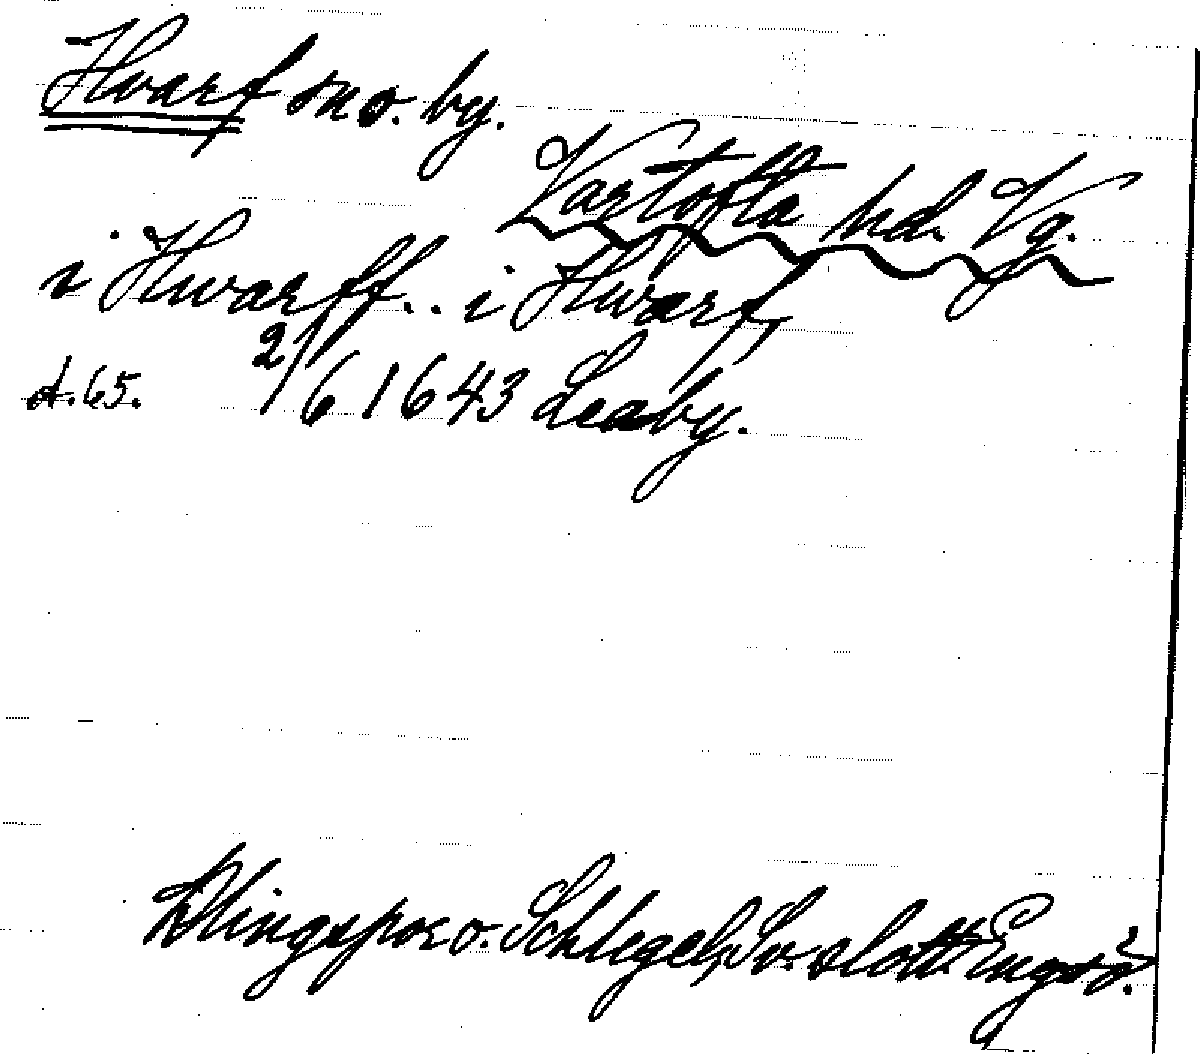 Hvarf sn o. by.
Vartofta hd. Vg.
i Hwarff.. i Hwarf
s. 65. 2/6 1643 Leaby.
Klingspor o. Schlegel, Sv. slott. Engsö.